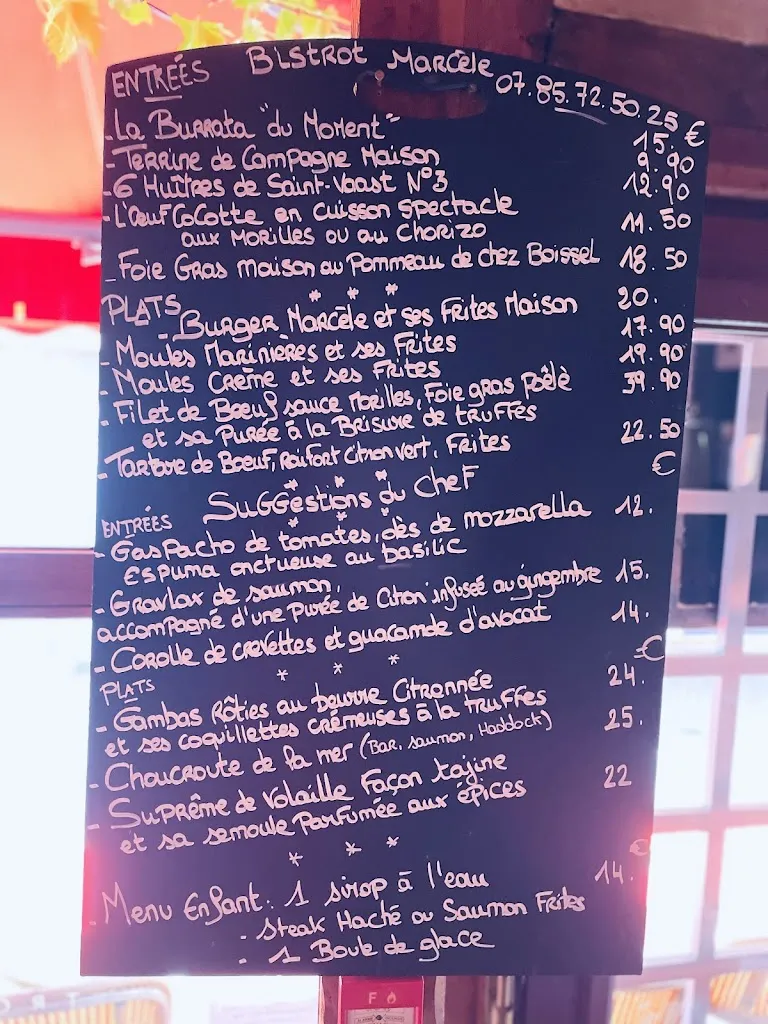 ENTRÉES Bistrot Marcèle 07.85.72.50.25 €
- La Burrata "du Moment" 15.
- Terrine de Campagne Maison 9.90
- 6 Huîtres de Saint-Vaast N°3 12.90
- L'Œuf Cocotte en cuisson spectacle 11.50
aux Morilles ou au Chorizo
- Foie Gras maison au Pommeau de chez Boissel 18.50
* * *
PLATS
- Burger Marcèle et ses Frites Maison 20.
- Moules Marinières et ses Frites 17.90
- Moules Crème et ses Frites 19.90
- Filet de Bœuf sauce Morilles, Foie gras Poêlè 39.90
et sa Purée à la Brisure de truffes
- Tartare de Boeuf, Raifort Citron vert, Frites 22.50
* * *
Suggestions du Chef €
* * *
ENTRÉES
- Gaspacho de tomates, dès de mozzarella 12.
Espuma onctueuse au basilic
- Gravlax de saumon,
accompagné d'une Purée de Citron infuseé au gingembre 15.
- Corolle de crevettes et guacamole d'avocat 14.
* * *
PLATS €
- Gambas Rôties au beurre Citronnée 24.
et ses coquillettes crémeuses à la truffes
- Choucroute de la mer (Bar, saumon, Haddock) 25.
- Suprême de Volaille Façon tajine 22
et sa semoule parfumée aux épices
* * *
€
- Menu Enfant: 1 sirop à l'eau 14.
- Steak Haché ou Saumon Frites
- 1 Boule de glace
F